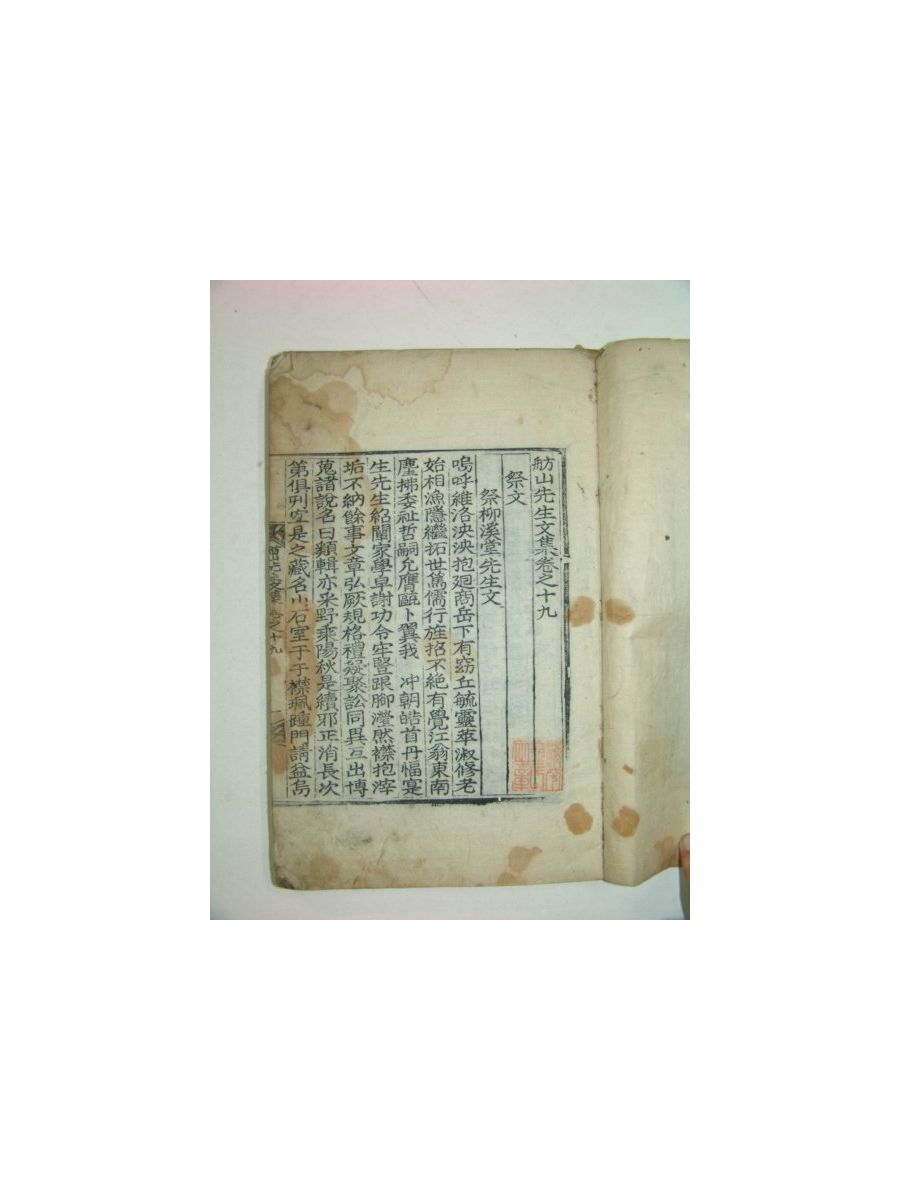 舫山先生文集卷之十九
祭文
祭柳溪堂先生文
嗚呼維洛泱泱抱廻商岳下有窈丘毓靈萃淑修老
始相漁隱繼拓世篤儒行旌招不絕有覺江翁東南
塵拂委祉哲嗣允膺甌卜翼我 冲朝皓首丹愊寔
生先生紹闡家學卓謝功令牢豎跟脚瀅然襟抱滓
垢不納餘事文章弘厥規格禮疑聚訟同異互出博
蒐諸說名曰類輯亦采野乘陽秋是續邪正消長次
第俱列空是之藏名小石室于于襟珮踵門請益烏
文集 卷之十九